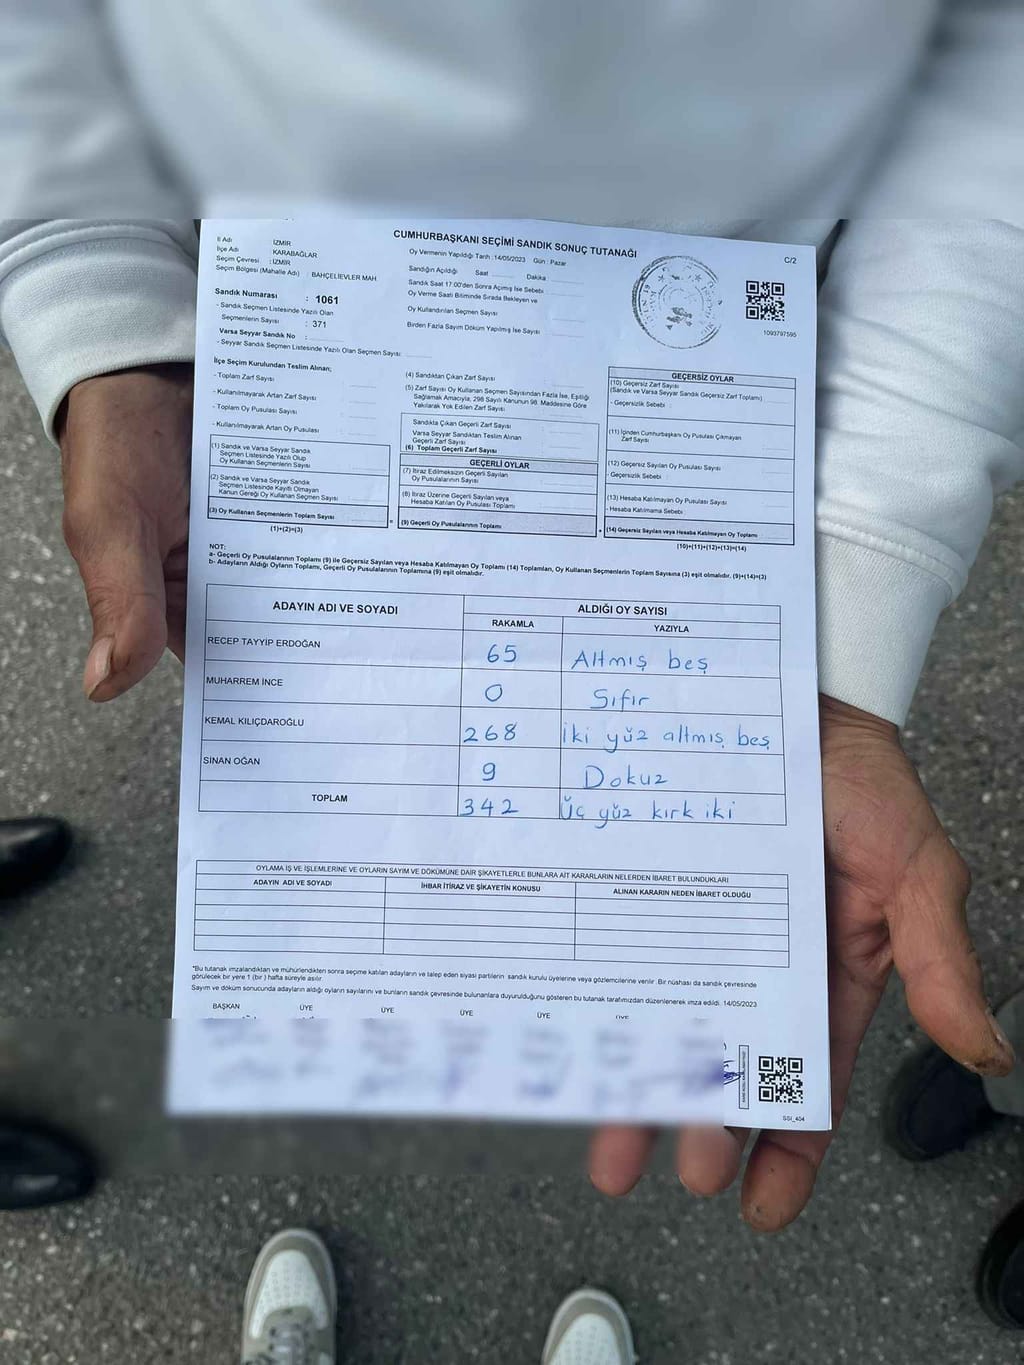 CUMHURBAŞKANI SEÇİMİ SANDIK SONUÇ TUTANAĞI
C/2
İl Adı İZMİR
İlçe Adı KARABAĞLAR
Seçim Çevresi : İZMİR
Seçim Bölgesi (Mahalle Adı) : BAHÇELİEVLER MAH.
Sandık Numarası : 1061
- Sandık Seçmen Listesinde Yazılı Olan
Seçmenlerin Sayısı : 371
Varsa Seyyar Sandık No :
- Seyyar Sandık Seçmen Listesinde Yazılı Olan Seçmen Sayısı:
Oy Vermenin Yapıldığı Tarih :14/05/2023 Gün : Pazar
Sandığın Açıldığı Saat Dakika
Sandık Saat 17.00'den Sonra Açılmış İse Sebebi
Oy Verme Saati Bitiminde Sırada Bekleyen ve
Oy Kullandırılan Seçmen Sayısı
Birden Fazla Sayım Döküm Yapılmış İse Sayısı
1093797595
İlçe Seçim Kurulundan Teslim Alınan;
- Toplam Zarf Sayısı
- Kullanılmayarak Artan Zarf Sayısı
- Toplam Oy Pusulası Sayısı
- Kullanılmayarak Artan Oy Pusulası
(1) Sandık ve Varsa Seyyar Sandık
Seçmen Listesinde Yazılı Olup
Oy Kullanan Seçmenlerin Sayısı
(2) Sandık ve Varsa Seyyar Sandık
Seçmen Listesinde Kayıtlı Olmayan
Kanun Gereği Oy Kullanan Seçmen Sayısı
(3) Oy Kullanan Seçmenlerin Toplam Sayısı
(1)+(2)=(3)
(4) Sandıktan Çıkan Zarf Sayısı
(5) Zarf Sayısı Oy Kullanan Seçmen Sayısından Fazla İse, Eşitliği
Sağlamak Amacıyla; 298 Sayılı Kanunun 98. Maddesine Göre
Yakılarak Yok Edilen Zarf Sayısı
Sandıkta Çıkan Geçerli Zarf Sayısı
Varsa Seyyar Sandıktan Teslim Alınan
Geçerli Zarf Sayısı
(6) Toplam Geçerli Zarf Sayısı
GEÇERLİ OYLAR
(7) İtiraz Edilmeksizin Geçerli Sayılan
Oy Pusulalarının Sayısı
(8) İtiraz Üzerine Geçerli Sayılan veya
Hesaba Katılan Oy Pusulası Toplamı
= (9) Geçerli Oy Pusulalarının Toplamı
GEÇERSİZ OYLAR
(10) Geçersiz Zarf Sayısı
(Sandık ve Varsa Seyyar Sandık Geçersiz Zarf Toplamı)
- Geçersizlik Sebebi
(11) İçinden Cumhurbaşkanı Oy Pusulası Çıkmayan
Zarf Sayısı
(12) Geçersiz Sayılan Oy Pusulası Sayısı
- Geçersizlik Sebebi
(13) Hesaba Katılmayan Oy Pusulası Sayısı
- Hesaba Katılmama Sebebi
+ (14) Geçersiz Sayılan veya Hesaba Katılmayan Oy Toplamı
(10)+(11)+(12)+(13)=(14)
NOT:
a- Geçerli Oy Pusulalarının Toplamı (9) ile Geçersiz Sayılan veya Hesaba Katılmayan Oy Toplamı (14) Toplamları, Oy Kullanan Seçmenlerin Toplam Sayısına (3) eşit olmalıdır. (9)+(14)=(3)
b- Adayların Aldığı Oyların Toplamı, Geçerli Oy Pusulalarının Toplamına (9) eşit olmalıdır.
ADAYIN ADI VE SOYADI ALDIĞI OY SAYISI
RAKAMLA YAZIYLA
RECEP TAYYİP ERDOĞAN 65 Altmış beş
MUHARREM İNCE 0 Sıfır
KEMAL KILIÇDAROĞLU 268 İki yüz altmış beş
SİNAN OĞAN 9 Dokuz
TOPLAM 342 Üç yüz kırk iki
OYLAMA İŞ VE İŞLEMLERİNE VE OYLARIN SAYIM VE DÖKÜMÜNE DAİR ŞİKAYETLERLE BUNLARA AİT KARARLARIN NELERDEN İBARET BULUNDUKLARI
ADAYIN ADI VE SOYADI İHBAR İTİRAZ VE ŞİKAYETİN KONUSU ALINAN KARARIN NEDEN İBARET OLDUĞU
*Bu tutanak imzalandıktan ve mühürlendikten sonra seçime katılan adayların ve talep eden siyasi partilerin sandık kurulu üyelerine veya gözlemcilerine verilir. Bir nüshası da sandık çevresinde
görülecek bir yere 1 (bir) hafta süreyle asılır.
Sayım ve döküm sonucunda adayların aldığı oyların sayılarını ve bunların sandık çevresinde bulunanlara duyurulduğunu gösteren bu tutanak tarafımızdan düzenlenerek imza edildi. 14/05/2023
BAŞKAN ÜYE ÜYE ÜYE ÜYE ÜYE
SSI_404